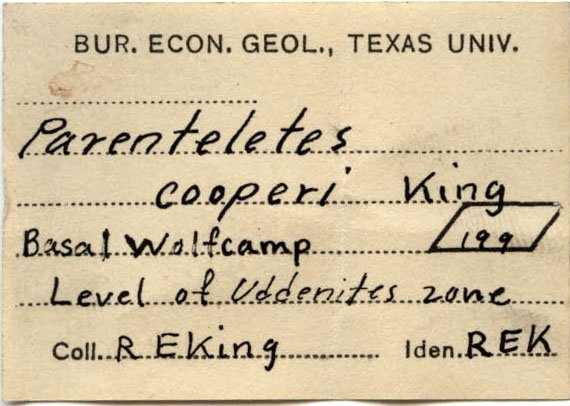 BUR. ECON. GEOL., TEXAS UNIV.
Parenteletes
cooperi King
Basal Wolfcamp 199
Level of Uddenites zone
Coll. R E King Iden. REK